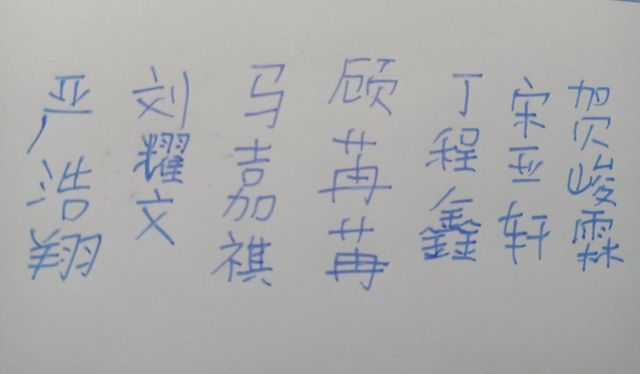 严浩翔
刘耀文
马嘉祺
顾苒苒
丁程鑫
宋亚轩
贺峻霖